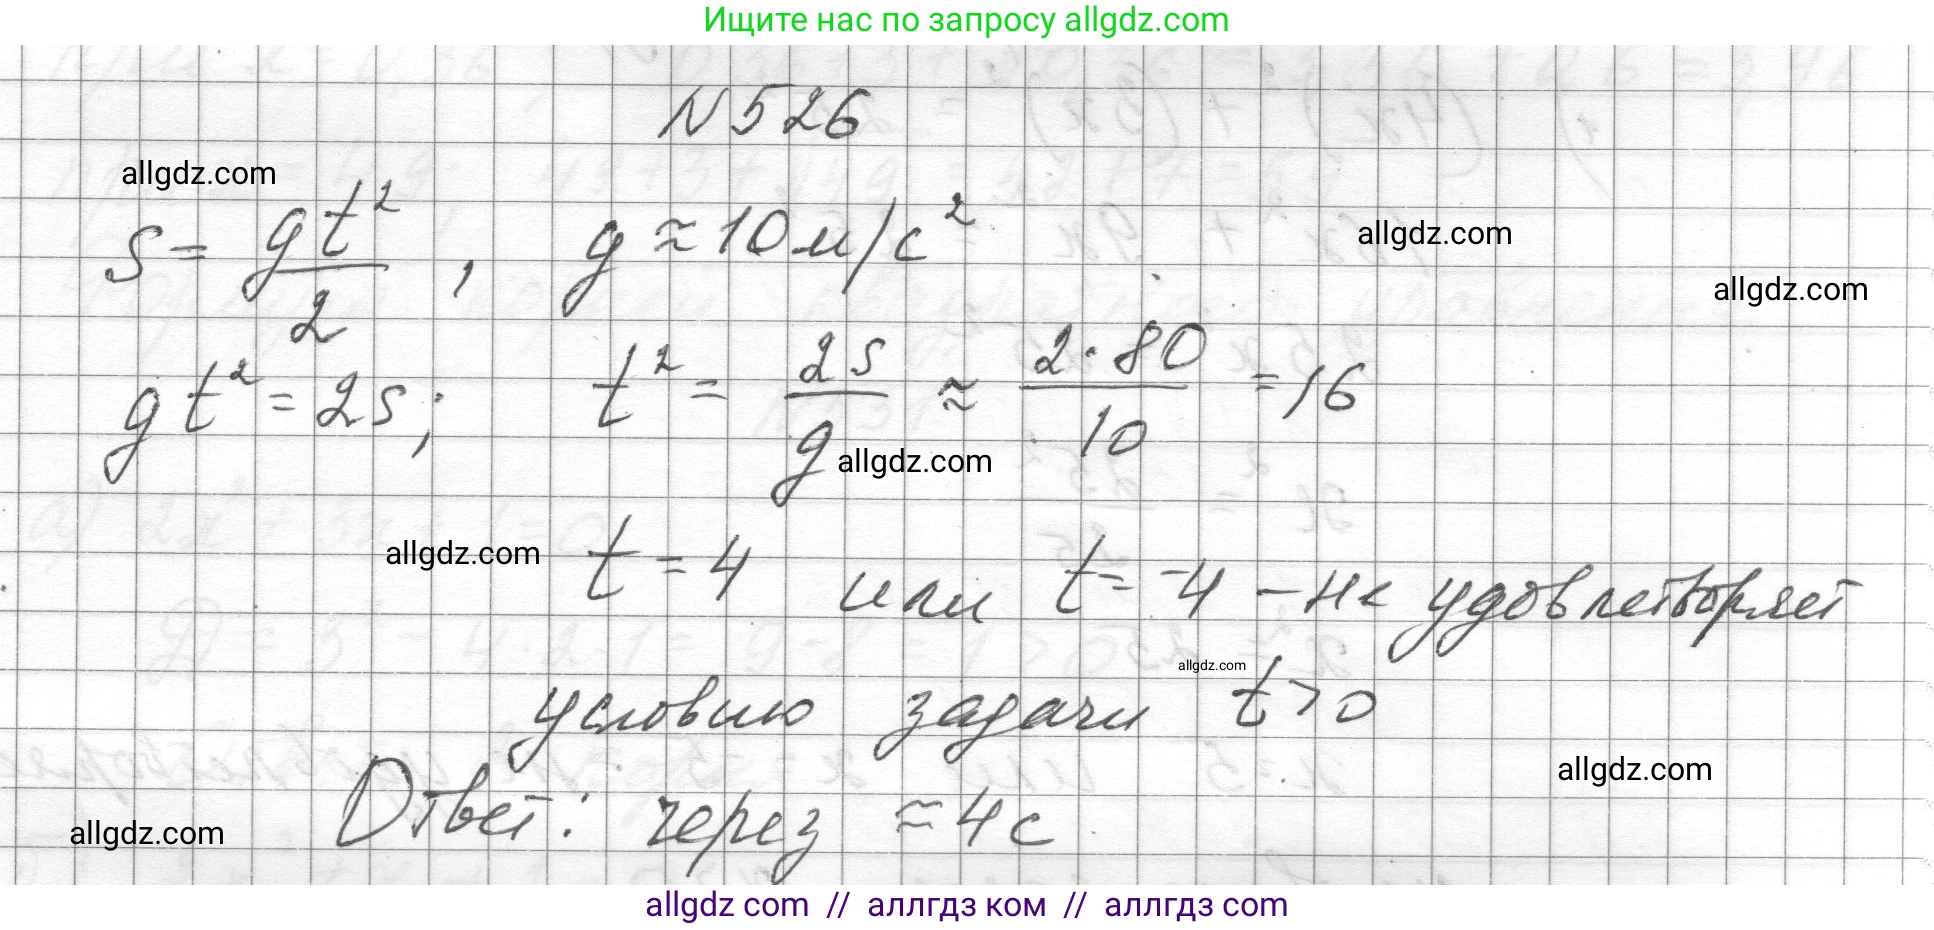 Ищите нас по запросу allgdz.com
N 526
allgdz.com
s = gt²/2 , g ≈ 10 м/с²
allgdz.com
allgdz.com
gt² = 2s; t² = 2s/g ≈ 2·80/10 = 16
allgdz.com
allgdz.com
t = 4 или t = -4 – не удовлетворяет
allgdz.com
условию задачи t > 0
allgdz.com
Ответ: через ≈ 4 с
allgdz.com
allgdz com // аллгдз ком // аллгдз com